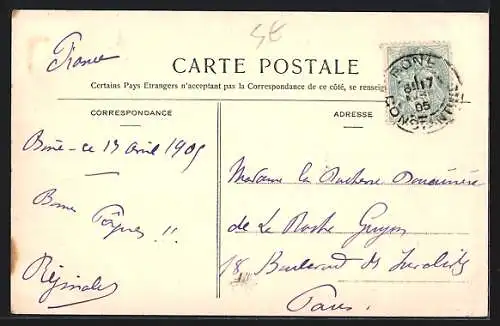 France
CARTE POSTALE
Certains Pays Etrangers n'acceptant pas la Correspondance de ce côté, se renseig
CORRESPONDANCE
ADRESSE
BONE
17
05
CONSTANTINE
Bône - ce 17 avril 1905
Bonnes Pâques !!
Madame la Duchesse Douairière
de La Roche Guyon
58 Boulevard des Invalides
Paris.